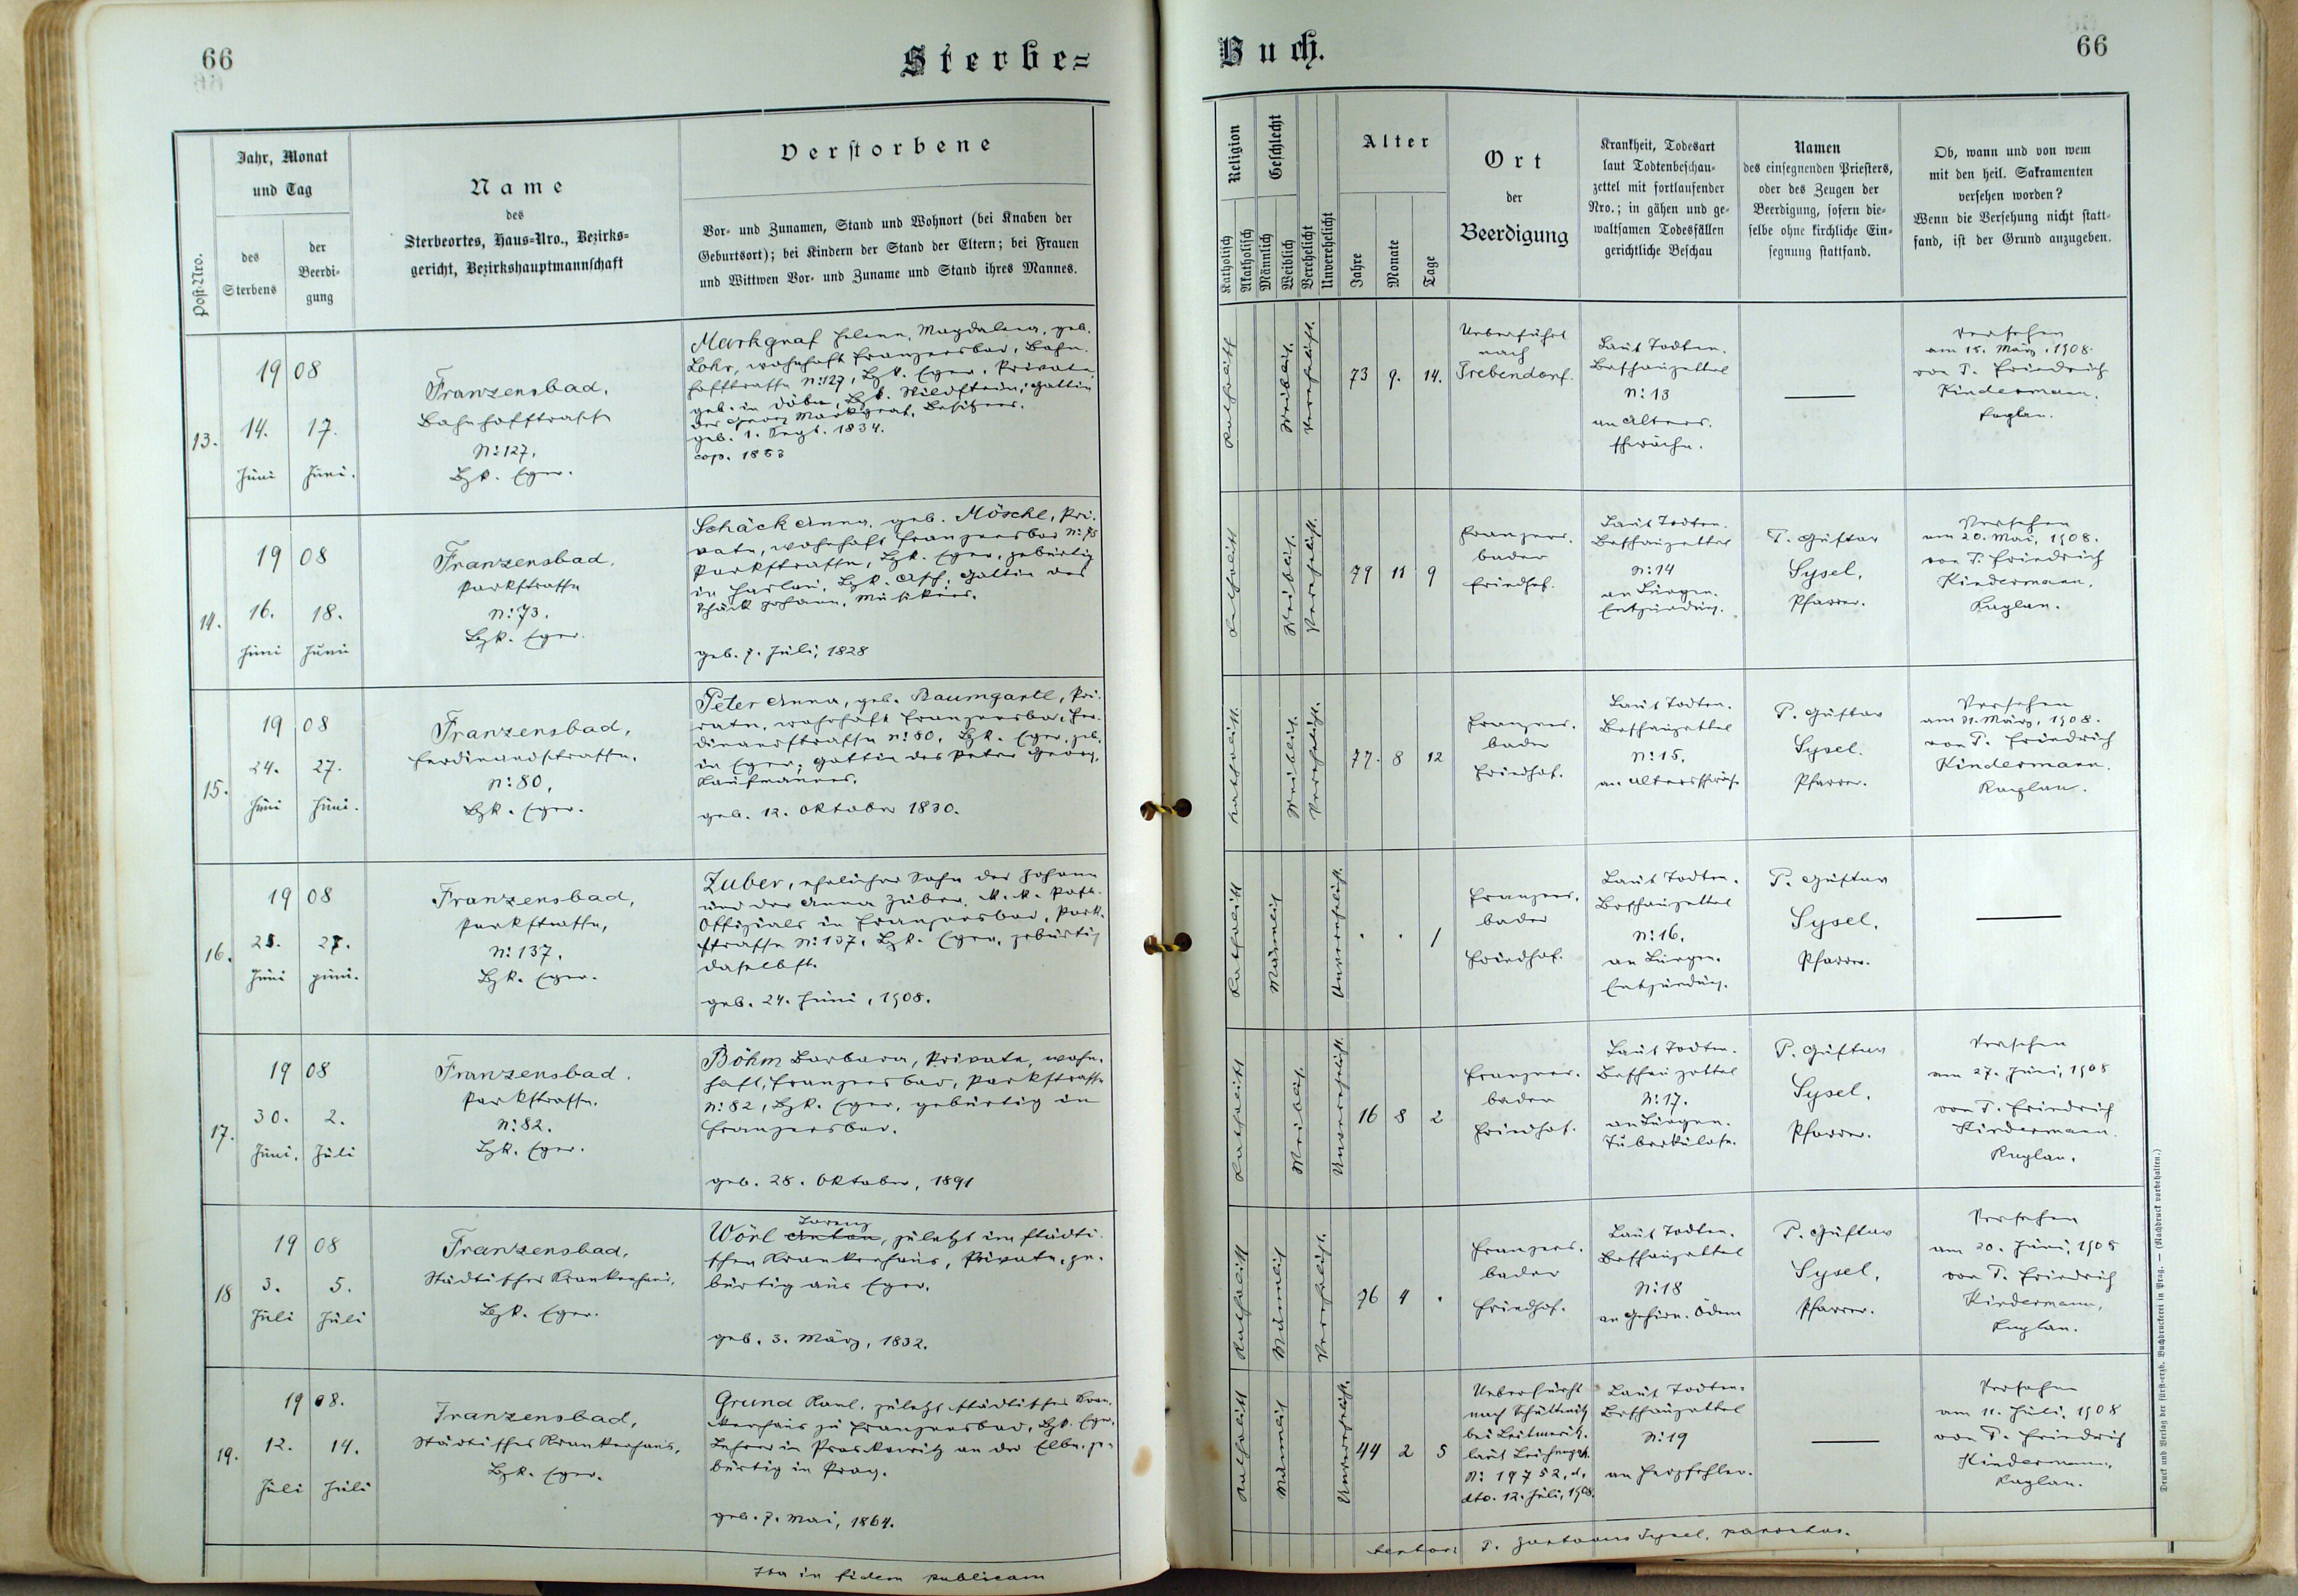 66
Sterbe=
Post-Nro.
Jahr, Monat
und Tag
des
Sterbens
der
Beerdi-
gung
Name
des
Sterbeortes, Haus-Nro., Bezirks-
gericht, Bezirkshauptmannschaft
Verstorbene
Vor- und Zunamen, Stand und Wohnort (bei Knaben der
Geburtsort); bei Kindern der Stand der Eltern; bei Frauen
und Wittwen Vor- und Zuname und Stand ihres Mannes.
13.
1908
14. 17.
Juni Juni.
Franzensbad,
Bahnhofstrasse
N: 127.
Bzk. Eger.
Markgraf Helena, Magdalena, geb.
Lohr, wohnhaft Franzensbad, Bahn-
hofstrasse N: 127, Bzk. Eger, Private,
geb. in Bzk. Wildstein, Gattin
des Georg Markgraf, Besitzers.
geb. 1. Sept. 1834.
cop. 1853
14.
1908
16. 18.
Juni Juni
Franzensbad,
Parkstrasse
N: 73.
Bzk. Eger.
Schäck Anna, geb. Möschl, Pri-
vate, wohnhaft Franzensbad N: 73
Parkstrasse, Bzk. Eger, gebürtig
in Haslau, Bzk. Asch, Gattin des
Schäck Johann, Musikers.
geb. 7. Juli, 1828
15.
1908
24. 27.
Juni Juni.
Franzensbad,
Ferdinandstrasse.
N: 80,
Bzk. Eger.
Peter Anna, geb. Baumgartl, Pri-
vate, wohnhaft Franzensbad, Fer-
dinandstrasse N: 80, Bzk. Eger, geb.
in Eger, Gattin des Peter Georg,
Kaufmannes.
geb. 12. Oktober 1830.
16.
1908
25. 27.
Juni Juni.
Franzensbad,
Parkstrasse,
N: 137.
Bzk. Eger.
Zuber, ehelicher Sohn des Johann
und der Anna Zuber, k. k. Post-
Offizials in Franzensbad, Park-
strasse N: 137, Bzk. Eger, gebürtig
daselbst.
geb. 24. Juni, 1908.
17.
1908
30. 2.
Juni. Juli
Franzensbad.
Parkstrasse.
N: 82.
Bzk. Eger.
Böhm Barbara, Private, wohn-
haft, Franzensbad, Parkstrasse
N: 82, Bzk. Eger, gebürtig in
Franzensbad.
geb. 28. Oktober, 1891
18
1908
3. 5.
Juli Juli
Franzensbad,
Städtisches Krankenhaus,
Bzk. Eger.
Lorenz
Wörl Anton, zuletzt im städti-
schen Krankenhaus, Private, ge-
bürtig aus Eger.
geb. 3. März, 1832.
19.
1908.
12. 14.
Juli Juli
Franzensbad,
Städtisches Krankenhaus,
Bzk. Eger.
Grund Karl, zuletzt städtisches Kran-
kenhaus zu Franzensbad, Bzk. Eger,
Lehrer in Proskowitz an der Elbe, ge-
bürtig in Prag.
geb. 7. Mai, 1864.
Ita in fidem publicam
Buch.
66
Religion
Katholisch
Akatholisch
Geschlecht
Männlich
Weiblich
Verehelicht
Unverehelicht
Alter
Jahre
Monate
Tage
Ort
der
Beerdigung
Krankheit, Todesart
laut Todtenbeschau-
zettel mit fortlaufender
Nro.; in gähen und ge-
waltsamen Todesfällen
gerichtliche Beschau
Namen
des einsegnenden Priesters,
oder des Zeugen der
Beerdigung, sofern die-
selbe ohne kirchliche Ein-
segnung stattfand.
Ob, wann und von wem
mit den heil. Sakramenten
versehen worden?
Wenn die Versehung nicht statt-
fand, ist der Grund anzugeben.
Katholisch
Weiblich.
Verehelicht.
73 9. 14.
Ueberführt
nach
Trebendorf.
Laut Todten-
Beschauzettel
N: 13
an Alters-
schwäche.
Versehen
am 15. März, 1908.
von P. Friedrich
Kindermann,
Kaplan.
Katholisch
Weiblich.
Verehelicht.
79 11 9
Franzens-
bader
Friedhof.
Laut Todten-
Beschauzettel
N: 14
an Lungen-
Entzündung.
P. Gustav
Sysel,
Pfarrer.
Versehen
am 20. Mai, 1908.
von P. Friedrich
Kindermann,
Kaplan.
Katholisch.
Weiblich.
Verehelicht.
77. 8 12
Franzens-
bader
Friedhof.
Laut Todten-
Beschauzettel
N: 15.
an Altersschwäche.
P. Gustav
Sysel.
Pfarrer.
Versehen
am 31. März, 1908.
von P. Friedrich
Kindermann.
Kaplan.
Katholisch
Männlich
Unverehelicht.
. . 1
Franzens-
bader
Friedhof.
Laut Todten-
Beschauzettel
N: 16.
an Lungen-
Entzündung.
P. Gustav
Sysel,
Pfarrer.
Katholisch
Weiblich.
Unverehelicht.
16 8 2
Franzens-
bader
Friedhof.
Laut Todten-
Beschauzettel
N: 17.
an Lungen-
Tuberkulose.
P. Gustav
Sysel,
Pfarrer.
Versehen
am 27. Juni, 1908
von P. Friedrich
Kindermann.
Kaplan.
Katholisch
Männlich
Verehelicht.
76 4 .
Franzens-
bader
Friedhof.
Laut Todten-
Beschauzettel
N: 18
an Gehirn-Ödem
P. Gustav
Sysel,
Pfarrer.
Versehen
am 20. Juni, 1908
von P. Friedrich
Kindermann,
Kaplan.
Katholisch
Männlich
Unverehelicht.
44 2 5
Ueberführt
nach Schüttenitz
bei Leitmeritz.
laut
N: 19752, d.
dto. 12. Juli, 1908.
Laut Todten-
Beschauzettel
N: 19
an Herzfehler.
Versehen
am 11. Juli, 1908
von P. Friedrich
Kindermann,
Kaplan.
testor: P. Gustavus Sysel, parochus.
Druck und Verlag der fürst-erzb. Buchdruckerei in Prag. — (Nachdruck vorbehalten.)